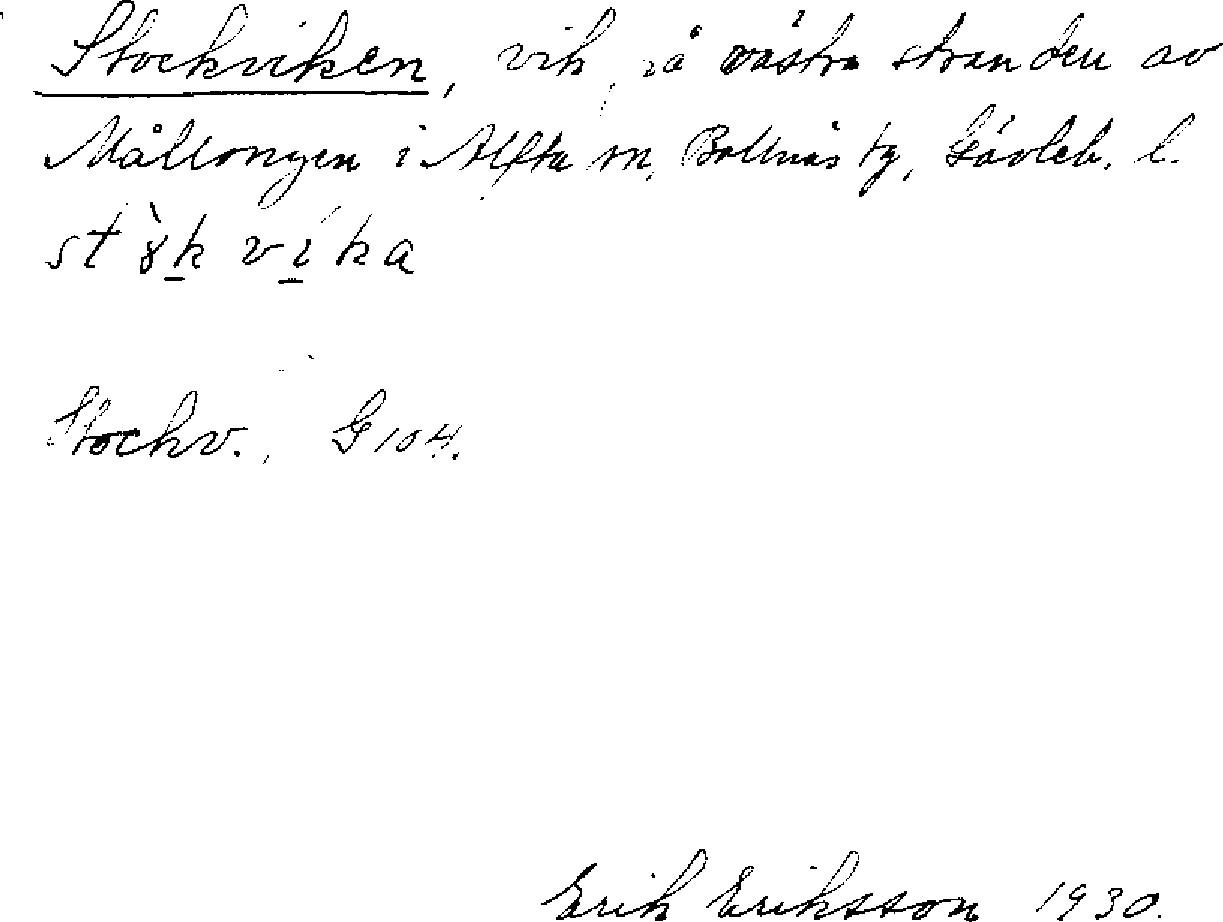 Stockviken, vik på västra stranden av
Mållongen i Alfta sn, Bollnäs tg, Gävleb. l.
Stockv., G 104.
Erik Eriksson 1930.